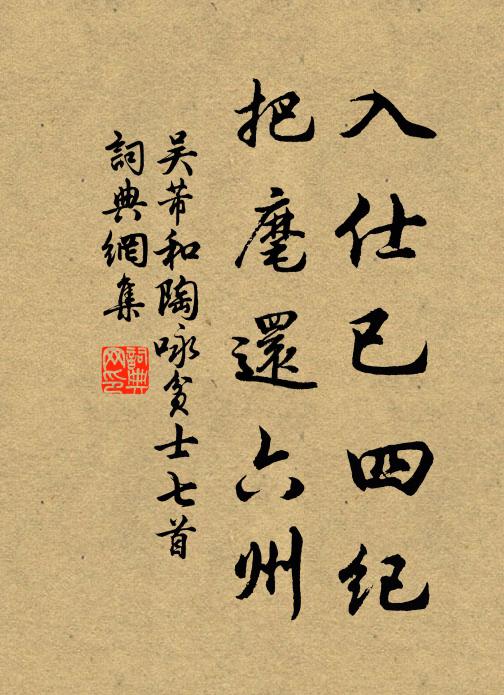 入仕已四紀
把麾還六州
吴芾和陶咏贫士七首
詞典網集
詞典网印